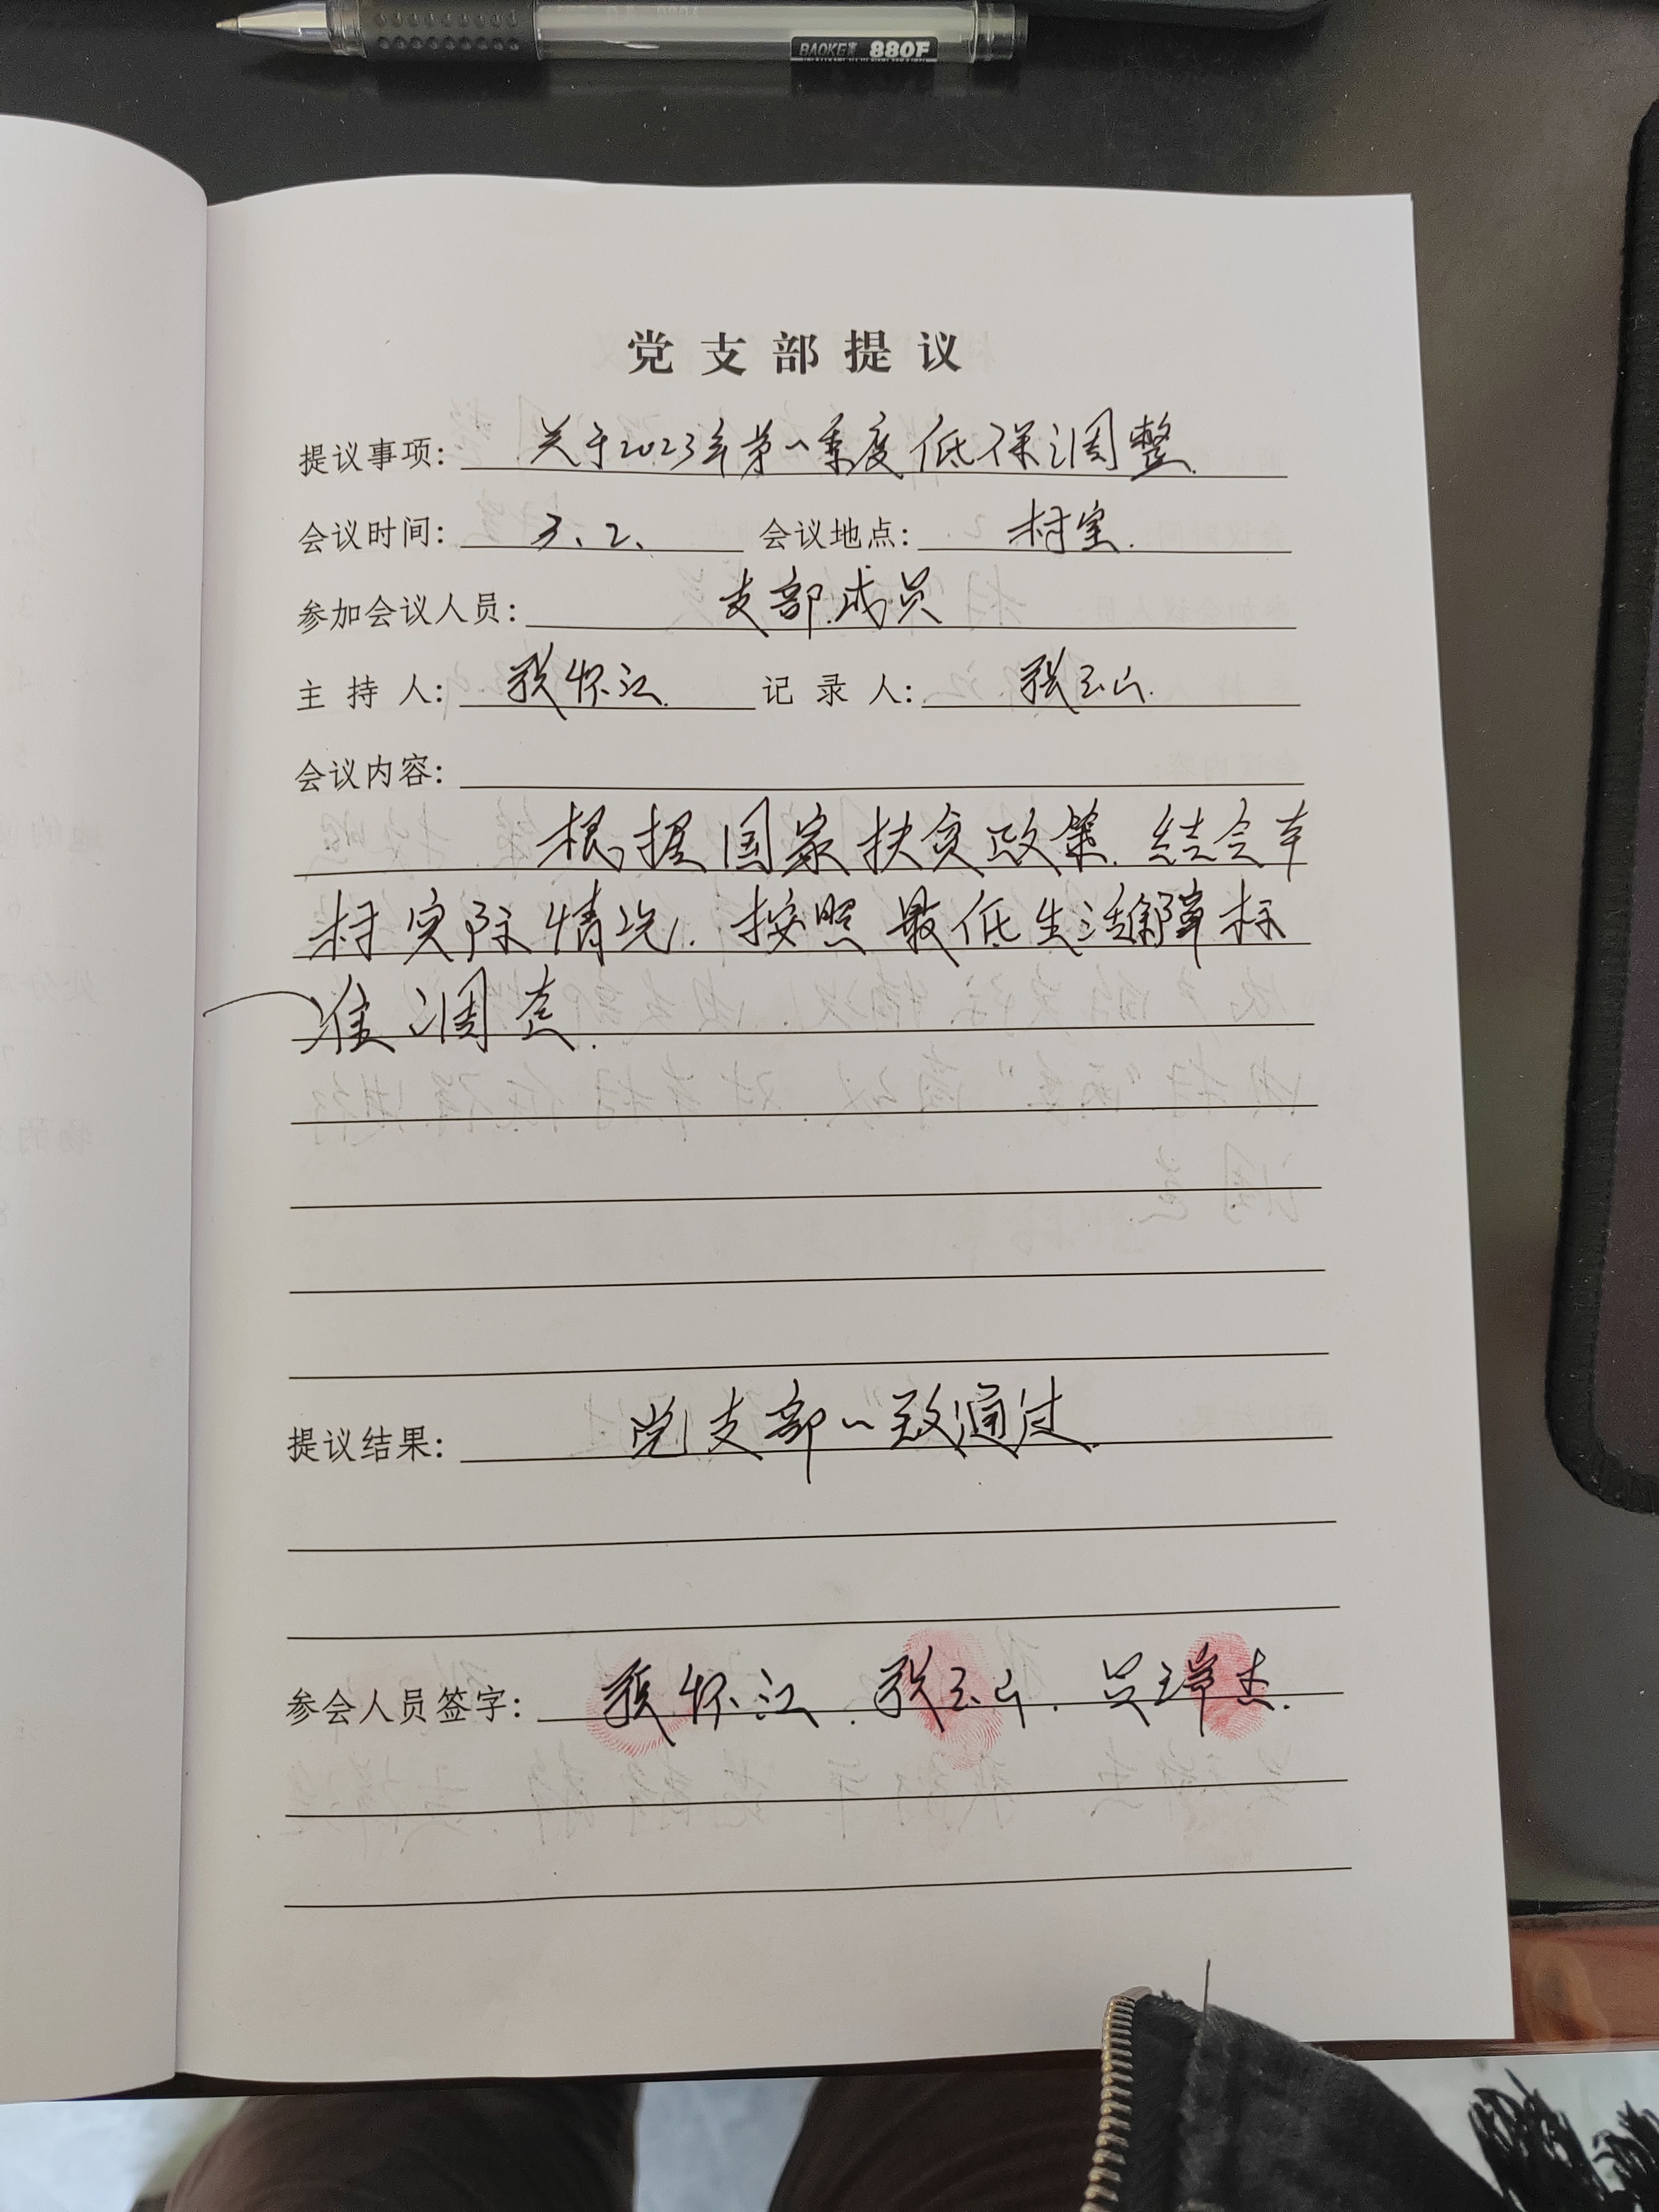 BAOKE 880F
党支部提议
提议事项: 关于2023年第一季度低保调整.
会议时间: 3、2、 会议地点: 村室.
参加会议人员: 支部成员
主持人: 张怀江. 记录人: 张玉山.
会议内容:
根据国家扶贫政策. 结合本
村实际情况. 按照最低生活保障标
准调查.
提议结果: 党支部一致通过.
参会人员签字: 张怀江. 张玉山. 吕祥杰.